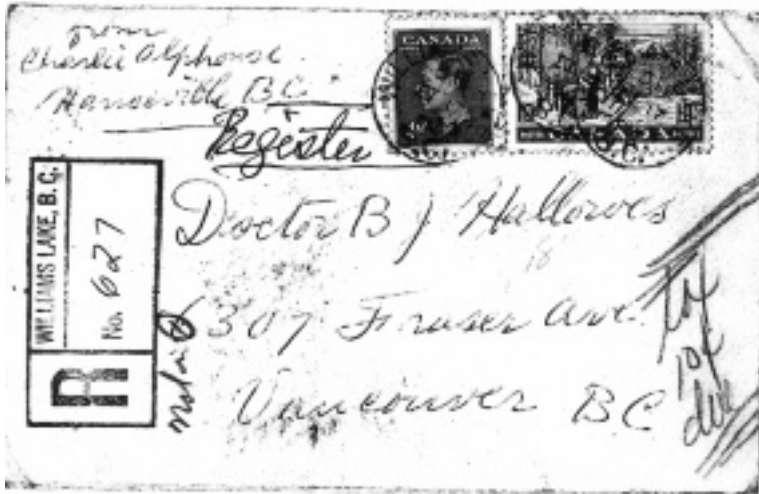 from
Charlie Alphonse
Hanceville B.C.
Register
CANADA
CANADA
WILLIAMS LAKE, B.C.
No. 627
R
Doctor B J Hallowes
6307 Fraser Ave.
Vancouver BC
10¢
due